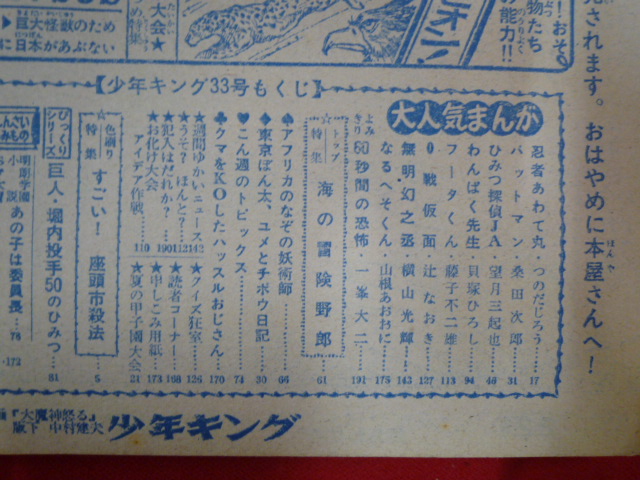 売されます。おはやめに本屋さんへ！
物たち
の能力!!
大会★
▷巨大怪獣のため
に日本があぶない
【少年キング33号もくじ】
大人気まんが
忍者あわて丸・つのだじろう…17
バットマン・桑田次郎…31
ひみつ探偵JA・望月三起也…48
わんぱく先生・貝塚ひろし…94
フータくん・藤子不二雄…113
0戦仮面・辻なおき…127
無明幻之丞・横山光輝…143
なるへそくん・山根あおおに…175
よみきり 60秒間の恐怖・一峯大二…191
☆トップ特集 海の冒険野郎…61
♠アフリカのなぞの妖術師…66
◆東京ぽん太、ユメとチボウ日記…30
♥こん週のトピックス…74
♣クマをKOしたハッスルおじさん…170
★週間ゆかいニュース…142
★うそ？ほんと？…112
★犯人はだれか？…190
★お化け大会
アイデア作戦…110
★クイズ狂室…126
★読者コーナー…168
★申しこみ用紙…173
★夏の甲子園大会…21
☆色刷り特集 すごい！座頭市殺法…5
びっくりシリーズ 巨人・堀内投手50のひみつ…81
明朗学園小説 あの子は委員長…76
…172
『大魔神怒る』
阪下 中村建夫
少年キング